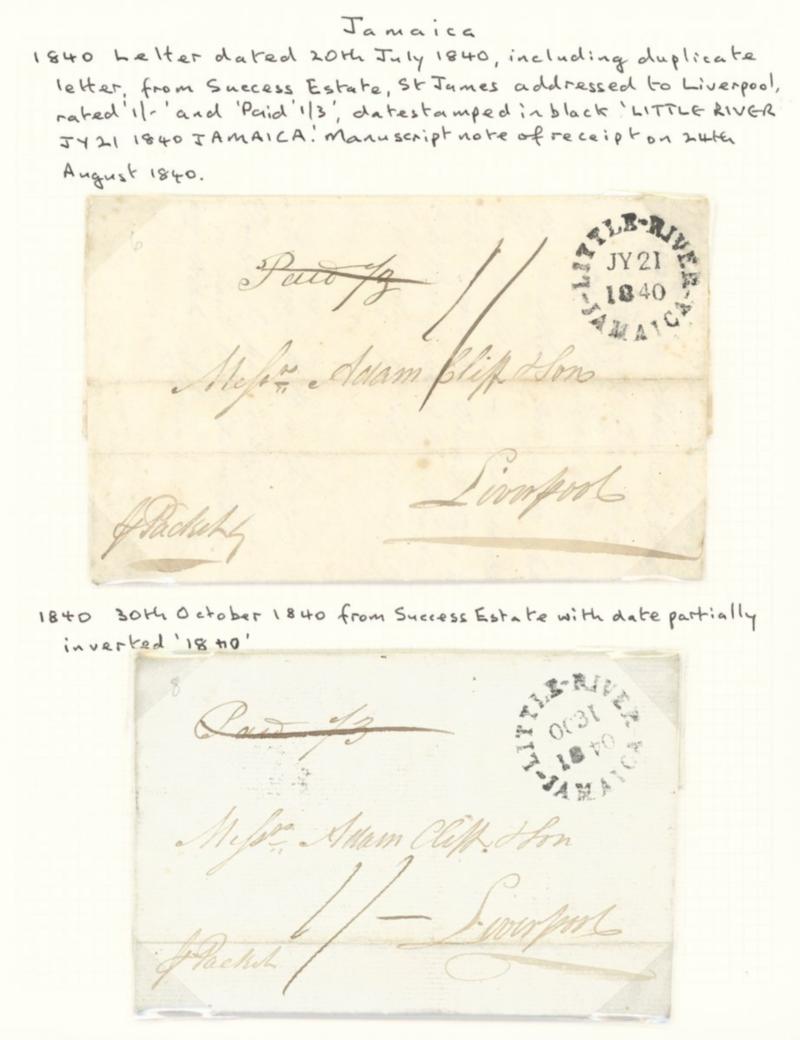 Jamaica
1840 Letter dated 20th July 1840, including duplicate
letter, from Success Estate, St James addressed to Liverpool,
rated '1/-' and 'Paid' 1/3', datestamped in black 'LITTLE RIVER
JY21 1840 JAMAICA.' Manuscript note of receipt on 24th
August 1840.
6
Paid 1/3
1/
LITTLE-RIVER
JY21
1840
-JAMAICA-
Messrs Adam Cliff & Son
Liverpool
Packet
1840 30th October 1840 from Success Estate with date partially
inverted '1840'
8
Paid 1/3
LITTLE-RIVER
OC31
1840
-JAMAICA
Messrs Adam Cliff & Son
1/-
Liverpool
Packet